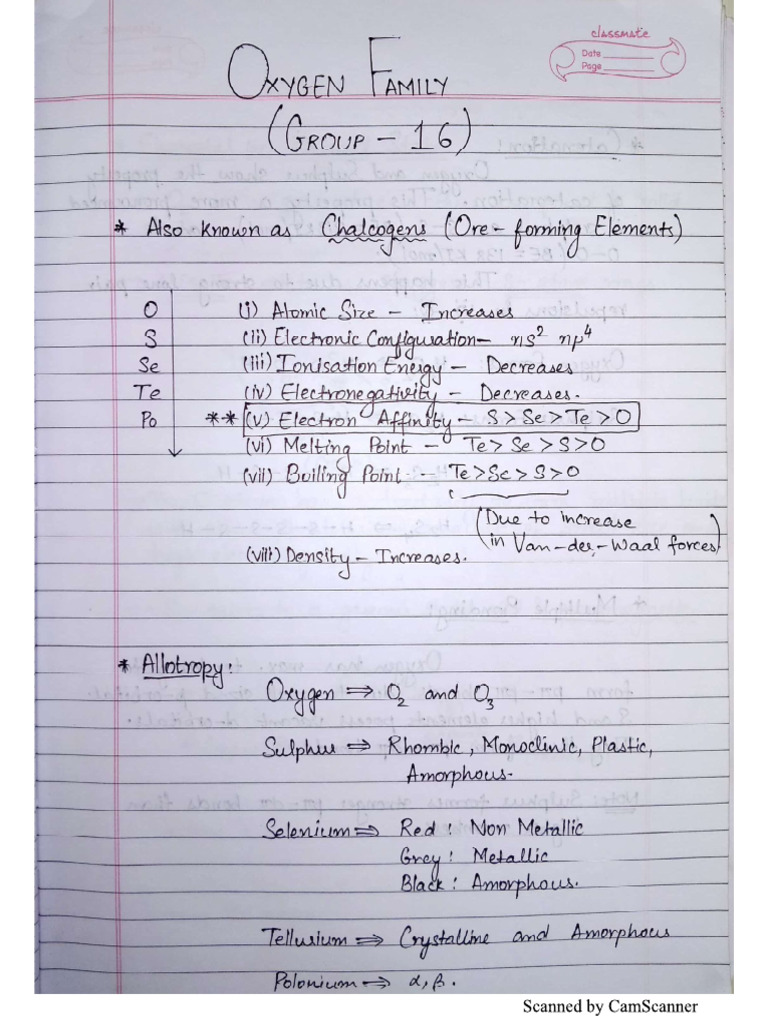 classmate
Date
Page
OXYGEN FAMILY
(GROUP - 16)
* Also known as Chalcogens (Ore-forming Elements)
O (i) Atomic Size - Increases
S (ii) Electronic Configuration - ns² np⁴
Se (iii) Ionisation Energy - Decreases
Te (iv) Electronegativity - Decreases.
Po ** (v) Electron Affinity - S > Se > Te > O
(vi) Melting Point - Te > Se > S > O
(vii) Boiling Point - Te > Se > S > O
(Due to increase
in Van-der-Waal forces)
(viii) Density - Increases.
* Allotropy:
Oxygen ⇒ O₂ and O₃
Sulphur ⇒ Rhombic, Monoclinic, Plastic,
Amorphous.
Selenium ⇒ Red : Non Metallic
Grey : Metallic
Black : Amorphous.
Tellurium ⇒ Crystalline and Amorphous
Polonium ⇒ α, β.
Scanned by CamScanner